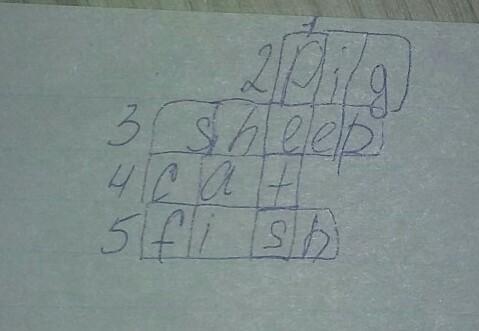 1
2 pig
3 sheep
4 cat
5 fish